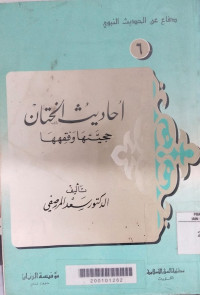 دفاع عن الحديث النبوي
٦
أحاديث الختان
حجيتها وفقهها
تأليف
الدكتور سعد المرصفي
مؤسسة الريان